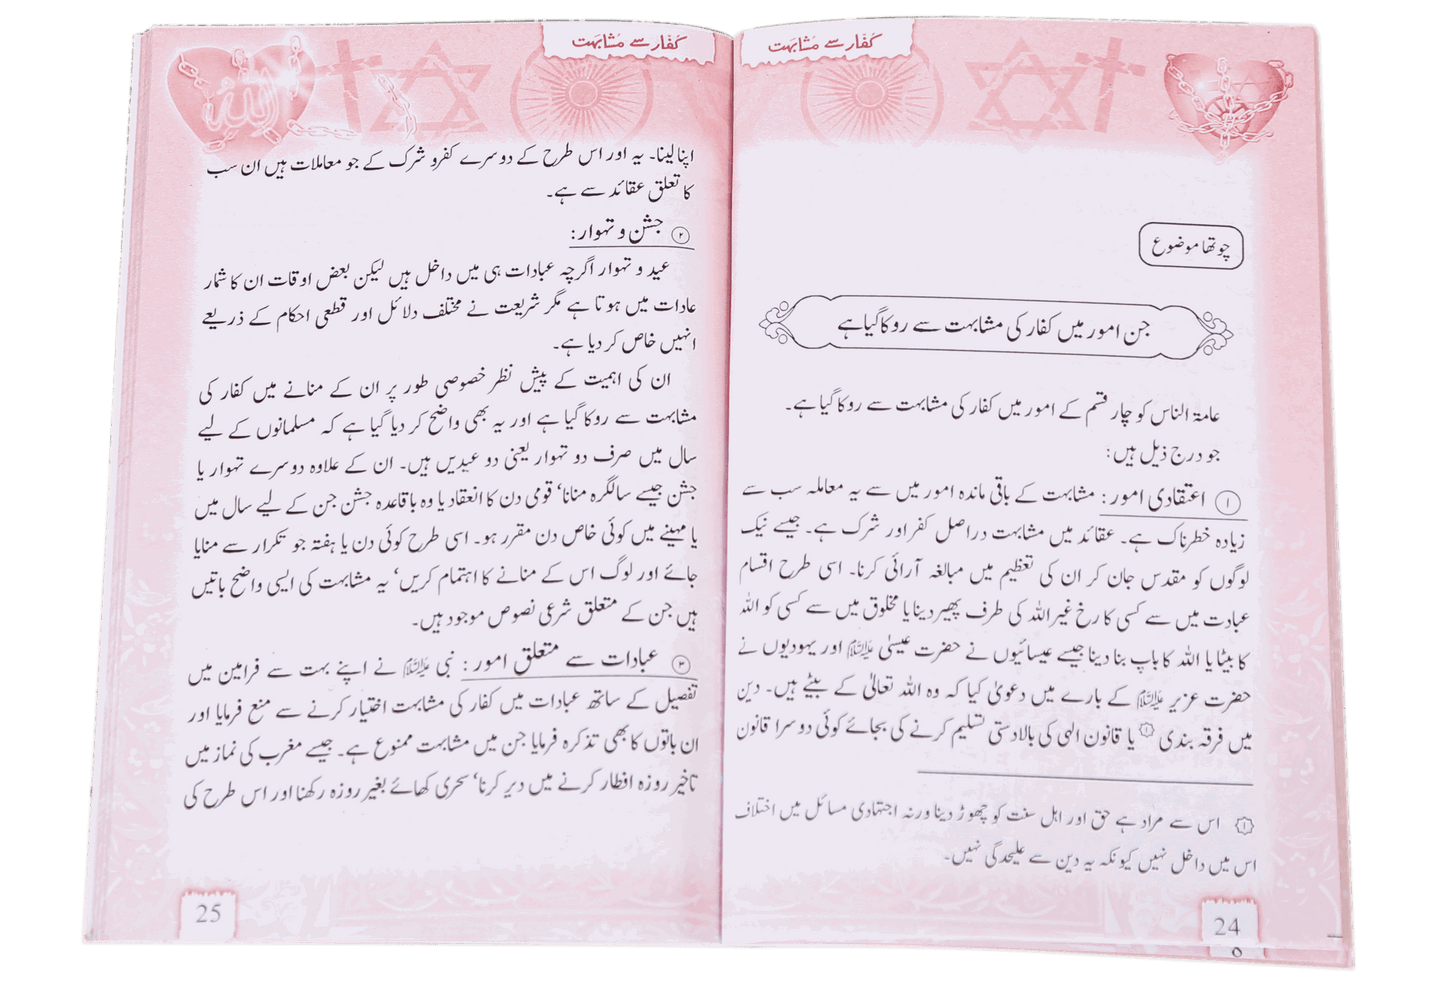 کفار سے مشابہت
چوتھا موضوع
جن امور میں کفار کی مشابہت سے روکا گیا ہے
عامۃ الناس کو چار قسم کے امور میں کفار کی مشابہت سے روکا گیا ہے۔
جو درج ذیل ہیں:
① اعتقادی امور: مشابہت کے باقی ماندہ امور میں سے یہ معاملہ سب سے
زیادہ خطرناک ہے۔ عقائد میں مشابہت دراصل کفر اور شرک ہے۔ جیسے نیک
لوگوں کو مقدس جان کر ان کی تعظیم میں مبالغہ آرائی کرنا۔ اسی طرح اقسام
عبادت میں سے کسی کا رخ غیر اللہ کی طرف پھیر دینا یا مخلوق میں سے کسی کو اللہ
کا بیٹا یا اللہ کا باپ بنا دینا جیسے عیسائیوں نے حضرت عیسیٰ علیہ السلام اور یہودیوں نے
حضرت عزیر علیہ السلام کے بارے میں دعویٰ کیا کہ وہ اللہ تعالیٰ کے بیٹے ہیں۔ دین
میں فرقہ بندی ① یا قانون الہی کی بالادستی تسلیم کرنے کی بجائے کوئی دوسرا قانون
① اس سے مراد ہے حق اور اہل سنت کو چھوڑ دینا ورنہ اجتہادی مسائل میں اختلاف
اس میں داخل نہیں کیونکہ یہ دین سے علیحدگی نہیں۔
24
8
کفار سے مشابہت
اپنا لینا۔ یہ اور اس طرح کے دوسرے کفر و شرک کے جو معاملات ہیں ان سب
کا تعلق عقائد سے ہے۔
② جشن و تہوار:
عید و تہوار اگرچہ عبادات ہی میں داخل ہیں لیکن بعض اوقات ان کا شمار
عادات میں ہوتا ہے مگر شریعت نے مختلف دلائل اور قطعی احکام کے ذریعے
انہیں خاص کر دیا ہے۔
ان کی اہمیت کے پیش نظر خصوصی طور پر ان کے منانے میں کفار کی
مشابہت سے روکا گیا ہے اور یہ بھی واضح کر دیا گیا ہے کہ مسلمانوں کے لیے
سال میں صرف دو تہوار یعنی دو عیدیں ہیں۔ ان کے علاوہ دوسرے تہوار یا
جشن جیسے سالگرہ منانا‘ قومی دن کا انعقاد یا وہ باقاعدہ جشن جن کے لیے سال میں
یا مہینے میں کوئی خاص دن مقرر ہو۔ اسی طرح کوئی دن یا ہفتہ جو تکرار سے منایا
جائے اور لوگ اس کے منانے کا اہتمام کریں‘ یہ مشابہت کی ایسی واضح باتیں
ہیں جن کے متعلق شرعی نصوص موجود ہیں۔
③ عبادات سے متعلق امور: نبی ﷺ نے اپنے بہت سے فرامین میں
تفصیل کے ساتھ عبادات میں کفار کی مشابہت اختیار کرنے سے منع فرمایا اور
ان باتوں کا بھی تذکرہ فرمایا جن میں مشابہت ممنوع ہے۔ جیسے مغرب کی نماز میں
تاخیر روزہ افطار کرنے میں دیر کرنا‘ سحری کھائے بغیر روزہ رکھنا اور اس طرح کی
25
اللہ